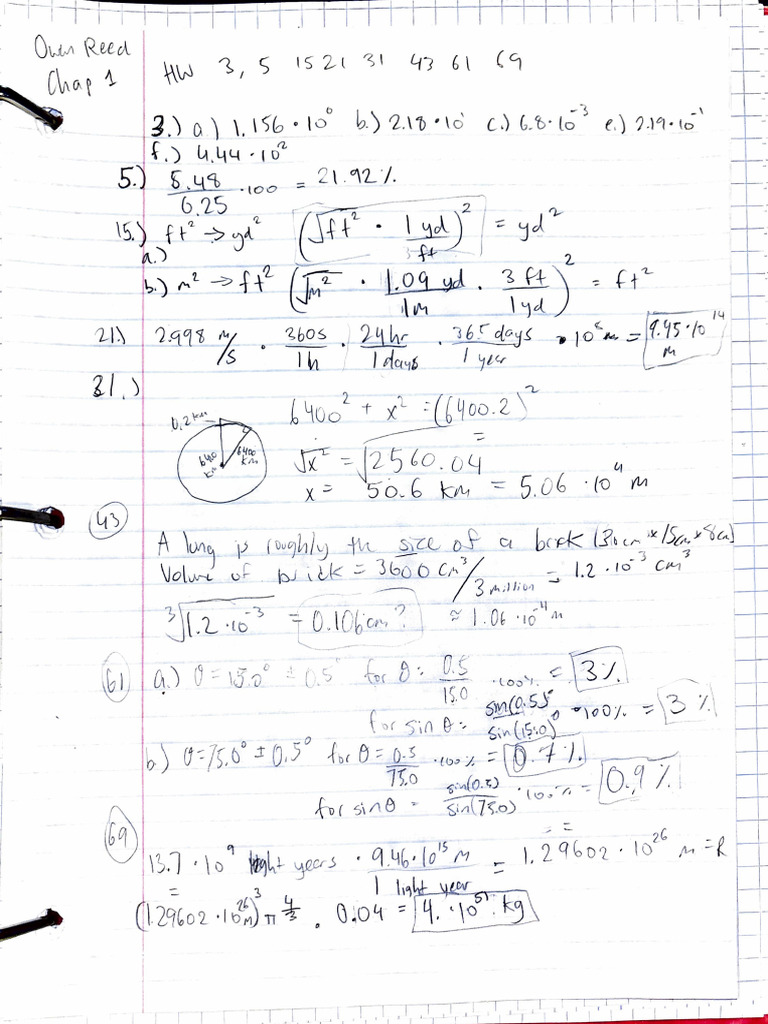 Owen Reed
Chap 1
HW 3, 5 15 21 31 43 61 69
3.) a.) 1.156 · 10⁰ b.) 2.18 · 10¹ c.) 6.8 · 10⁻³ e.) 2.19 · 10⁻¹
f.) 4.44 · 10²
5.) 5.48 / 6.25 · 100 = 21.92 %
15.) ft² → yd² (√ft² · 1 yd / 3 ft)² = yd²
a.)
b.) m² → ft² (√m² · 1.09 yd / 1 m · 3 ft / 1 yd)² = ft²
21.) 2.998 m/s · 3605 / 1h · 24 hr / 1 days · 365 days / 1 year · 10⁸ m = 9.45 · 10¹⁴ m
31.)
0.2 km
6400 km
6400² + x² = (6400.2)²
√x² = √2560.04
x = 50.6 km = 5.06 · 10⁴ m
43
A lung is roughly the size of a brick (30cm × 15cm × 8cm)
Volume of brick = 3600 cm³ / 3 million = 1.2 · 10⁻³ cm³
³√1.2 · 10⁻³ = 0.106cm? ≈ 1.06 · 10⁻⁴ m
61 a.) θ = 15.0° ± 0.5° for θ: 0.5 / 15.0 · 100% = 3%
for sin θ = sin(0.5)° / sin(15.0)° · 100% = 3%
b) θ = 75.0° ± 0.5° for θ = 0.5 / 75.0 · 100% = 0.7%
for sin θ = sin(0.5) / sin(75.0) · 100% = 0.9%
69
13.7 · 10⁹ light years · 9.46 · 10¹⁵ m / 1 light year = 1.29602 · 10²⁶ m = R
=
(1.29602 · 10²⁶ m)³ π 4/3 · 0.04 = 4. · 10⁵¹ · kg